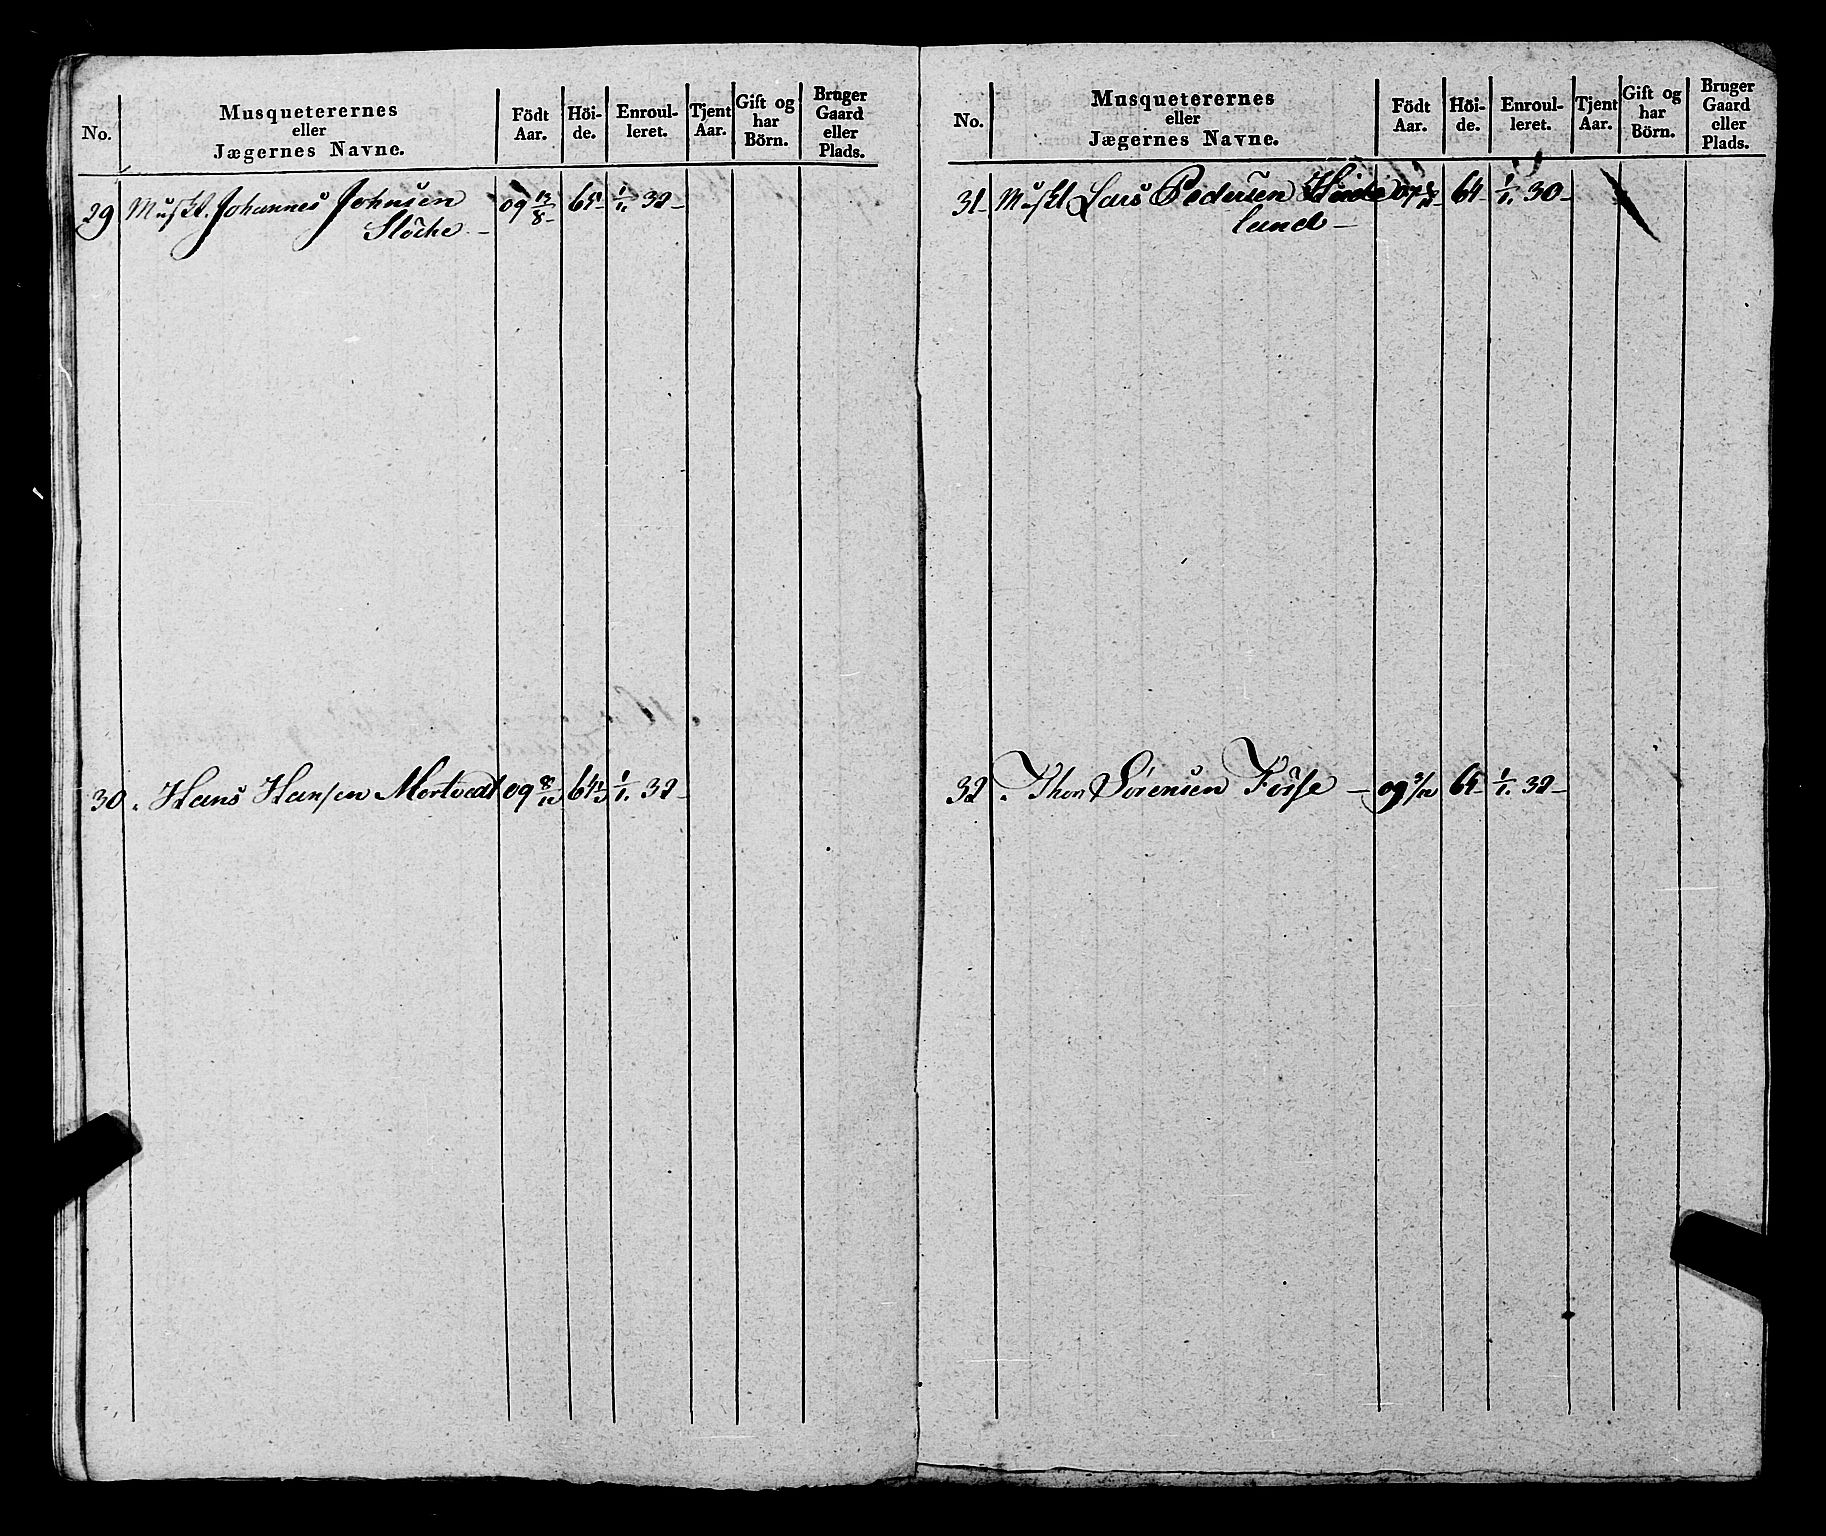 No.
Musqueterernes
eller
Jægernes Navne.
Födt
Aar.
Höi-
de.
Enroul-
leret.
Tjent
Aar.
Gift og
har
Börn.
Bruger
Gaard
eller
Plads.
29 Muskt. Johannes Johnsen 09 65 1/1. 32-
Slöche -
30. Hans Hansen Mortvedt 09 1/1. 32-
No.
Musqueterernes
eller
Jægernes Navne.
Födt
Aar.
Höi-
de.
Enroul-
leret.
Tjent
Aar.
Gift og
har
Börn.
Bruger
Gaard
eller
Plads.
31- Muskt Lars Pedersen 64- 1/1. 30-
land -
32. Thon Sörensen - 09 1/1. 32-